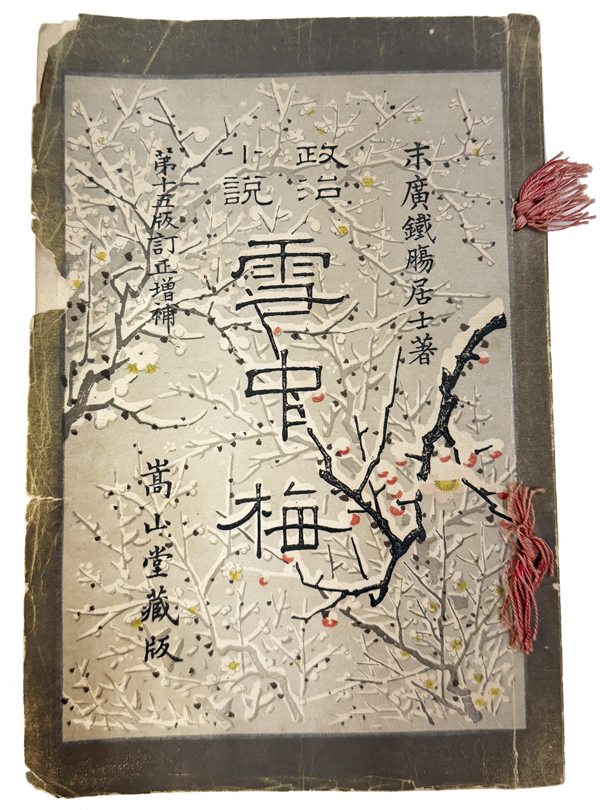 末廣鐵膓居士著
政治
小說
雪中梅
第十五版訂正增補
嵩山堂藏版